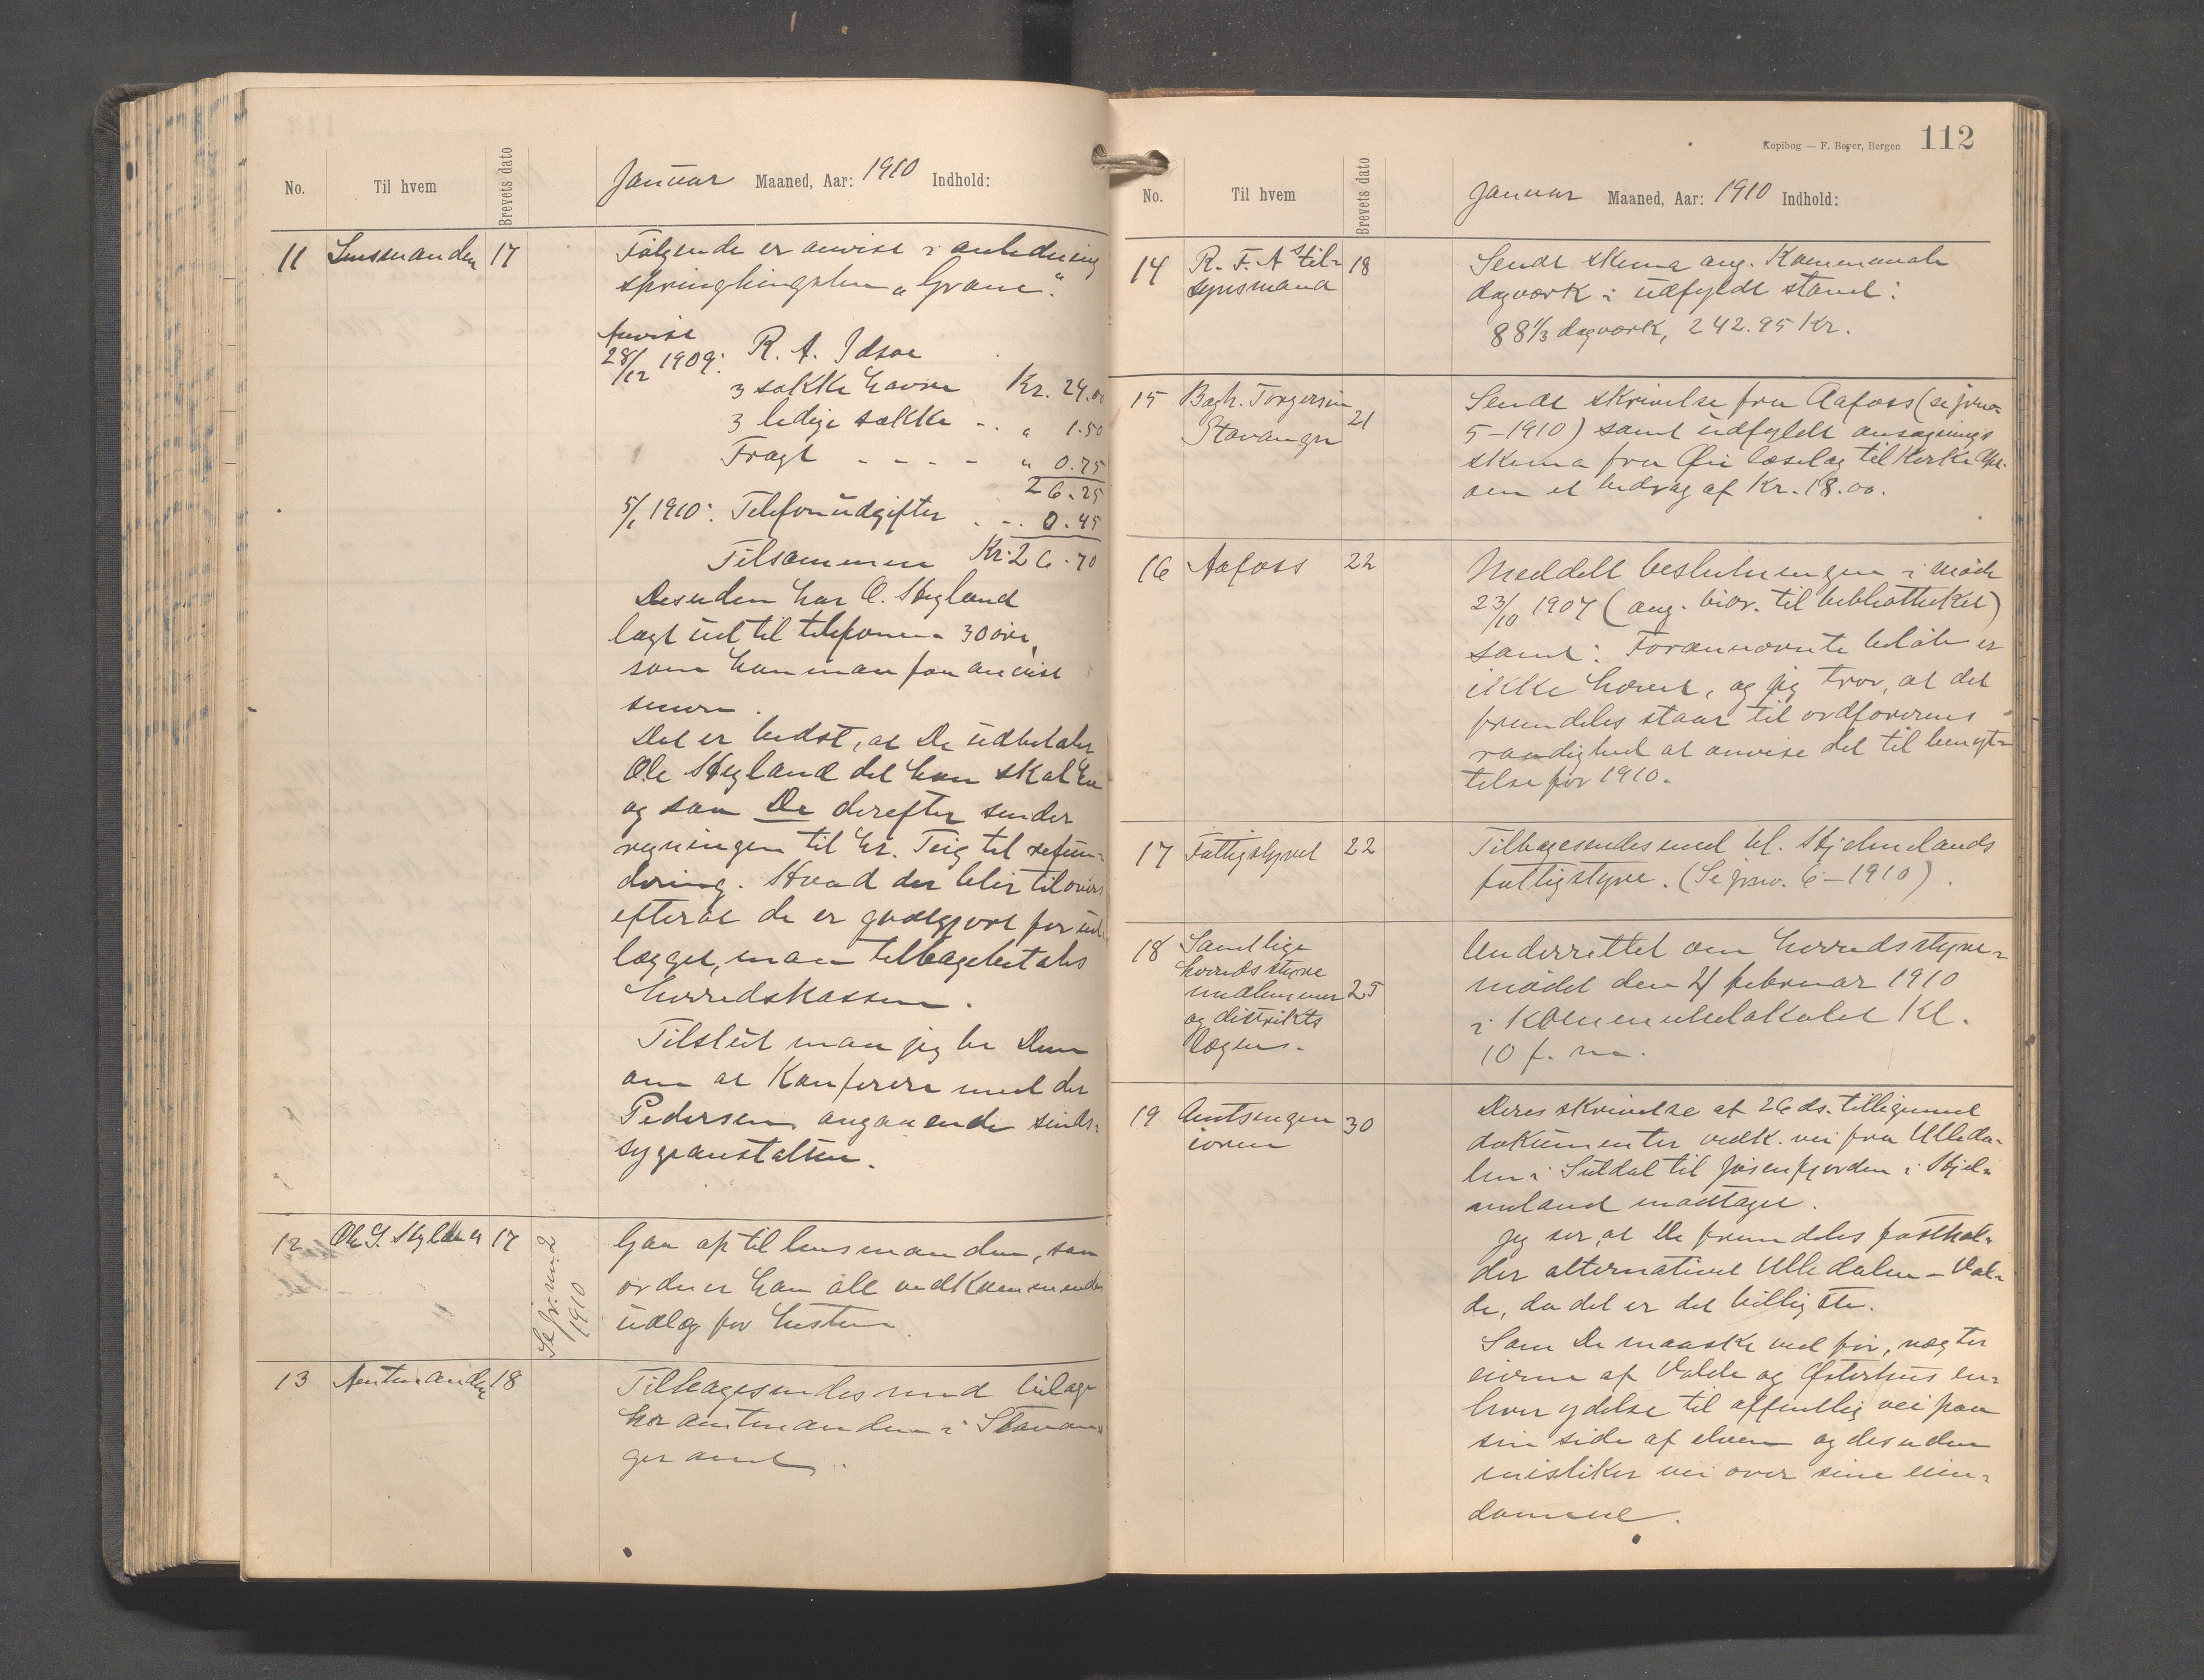 No. Til hvem Brevets dato Januar Maaned, Aar: 1910 Indhold:
11 Lensmanden 17 Følgende er anvist i anledning
springhingsten "Grane".
Anvist
28/12 1909: R. A. Idsøe
3 sække havre Kr. 24.00
3 ledige sække - - " 1.50
Fragt - - - - " 0.75
26.25
5/1 1910: Telefonudgifter . - . 0.45
Tilsammen Kr. 26.70
Desuden har O. Hegland
lagt ud til telefonen 30 øre,
som han maa faa anvist
senere.
Det er bedst, at De udbetaler
Ole Hegland det han skal ha
og saa De derefter sender
regningen til hr. Teig til refun-
dering. Hvad der blir tilovers
efterat de er godtgjort for ud-
lægget, maa tilbagebetales
herredskassen.
Tilslut maa jeg be Dem
om at konferere med der
Pedersen angaaende sinds-
sygeanstalten.
12 Ole S. Hegland 17 Se jr. nr. 2
1910
Gaa op til lensmanden, saa
ordner han alt vedkommende
udlæg for hesten.
13 Amtmanden 18 Tilbagesendes med bilage
hr. amtmanden i Stavan-
ger amt.
Kopibog — F. Beyer, Bergen 112
No. Til hvem Brevets dato Januar Maaned, Aar: 1910 Indhold:
14 R. F. A til- 18 Sendt skema ang. Kommunale
synsmand dagværk i udfyldt stand:
88 1/3 dagværk, 242.95 Kr.
15 Bogh. Torgersen 21 Sendt skrivelse fra Aafoss (se jrno.
Stavanger 5-1910) samt udfyldt ansøgnings
skema fra Øie læselag til Kirke
om et bidrag af Kr. 18.00.
16 Aafoss 22 Meddelt beslutningen i møde
23/10 1907 (ang. bidr. til bibliotheket)
samt: Forannævnte beløb er
ikke hævet, og jeg tror, at det
fremdeles staar til ordførerens
raadighed at anvise det til benyt-
telse for 1910.
17 Fattigstyret 22 Tilbagesendes med til Hjelmelands
fattigstyre. (Se jrno. 6-1910).
18 Samtlige
herredsstyre
medlemmer 25
og distrikts
lægen.
Underrettet om herredsstyre-
mødet den 4 februar 1910
i Kommunelokalet Kl.
10 f. m.
19 Amtsingen 30
iøren
Deres skrivelse af 26 ds. tilligemed
dokumenter vedk. vei fra Ulleda-
len i Suldal til Jøsenfjorden i Hjel-
meland modtaget.
Jeg ser, at De fremdeles fasthol-
der alternativet Ulledalen - Val-
de, da det er det billigste.
Som De maaske ved før, nægter
eierne af Valde og Østerhus en-
hver ydelse til offentlig vei paa
sin side af elven og desuden
mistiker vei over sine eien-
domme.